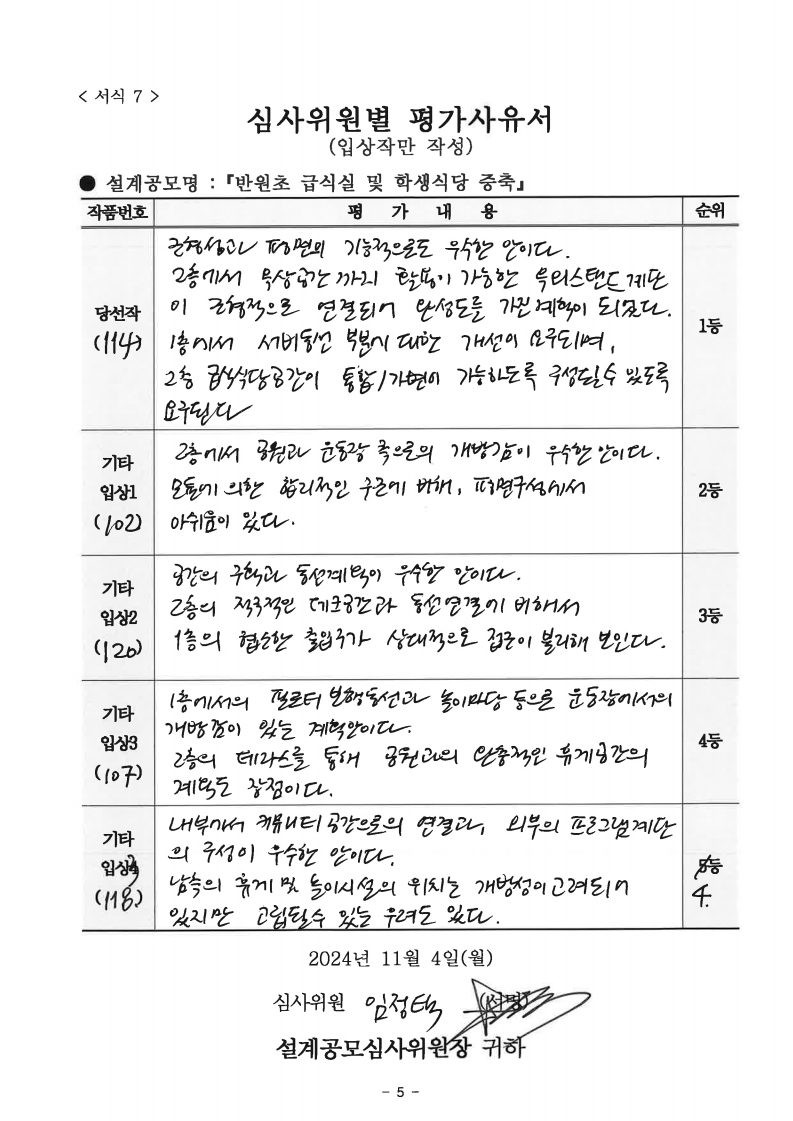 < 서식 7 >
심사위원별 평가사유서
(입상작만 작성)
● 설계공모명 : 『반원초 급식실 및 학생식당 증축』
작품번호 평 가 내 용 순위
당선작
(114)
균형성과 평면의 기능적으로도 우수한 안이다.
2층에서 옥상공간까지 활용이 가능한 옥외스탠드 계단
이 균형적으로 연결되어 완성도를 가진 계획이 되었다.
1층에서 서비동선 부분에 대한 개선이 요구되며,
2층 급식식당공간이 통합/가변이 가능하도록 구성될수 있도록
요구된다
1등
기타
입상1
(102)
2층에서 공원과 운동장 쪽으로의 개방감이 우수한 안이다.
모듈에 의한 합리적인 구조에 비해, 평면구성에서
아쉬움이 있다.
2등
기타
입상2
(120)
공간의 구획과 동선계획이 우수한 안이다.
2층의 적극적인 데크공간과 동선연결에 비해서
1층의 협소한 출입구가 상대적으로 접근이 불리해 보인다.
3등
기타
입상3
(107)
1층에서의 필로티 보행동선과 놀이마당 등으로 운동장에서의
개방감이 있는 계획안이다.
2층의 테라스를 통해 공원과의 완충적인 휴게공간의
계획도 장점이다.
4등
기타
입상3
(118)
내부에서 커뮤니티 공간으로의 연결과, 외부의 프로그램계단
의 구성이 우수한 안이다.
남측의 휴게 및 놀이시설의 위치는 개방성이 고려되어
있지만 고립될수 있는 우려도 있다.
5등
4.
2024년 11월 4일(월)
심사위원 임정택 (서명)
설계공모심사위원장 귀하
- 5 -